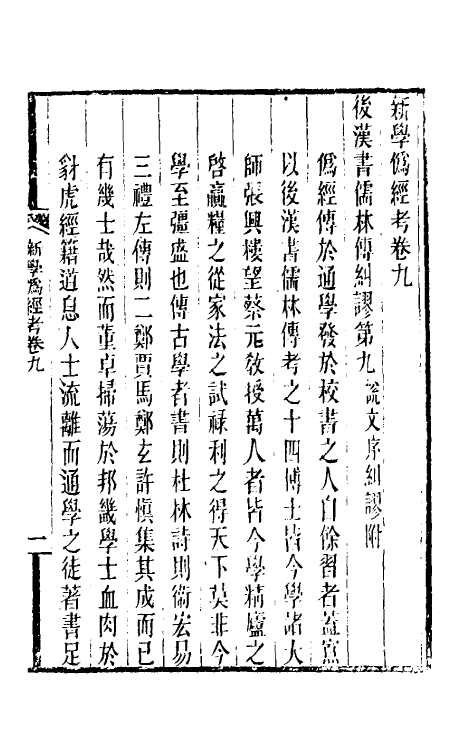 新學僞經考卷九
後漢書儒林傳糾謬第九 說文序糾謬附
僞經傳於通學發於校書之人自餘習者蓋寡
以後漢書儒林傳考之十四博士皆今學諸大
師張興樓望蔡元敎授萬人者皆今學精廬之
啓贏糧之從家法之試祿利之得天下莫非今
學至彊盛也傳古學者書則杜林詩則衞宏易
三禮左傳則二鄭賈馬鄭玄許愼集其成而已
有幾士哉然而董卓掃蕩於邦畿學士血肉於
豺虎經籍道息人士流離而通學之徒著書足
新學僞經考卷九
一